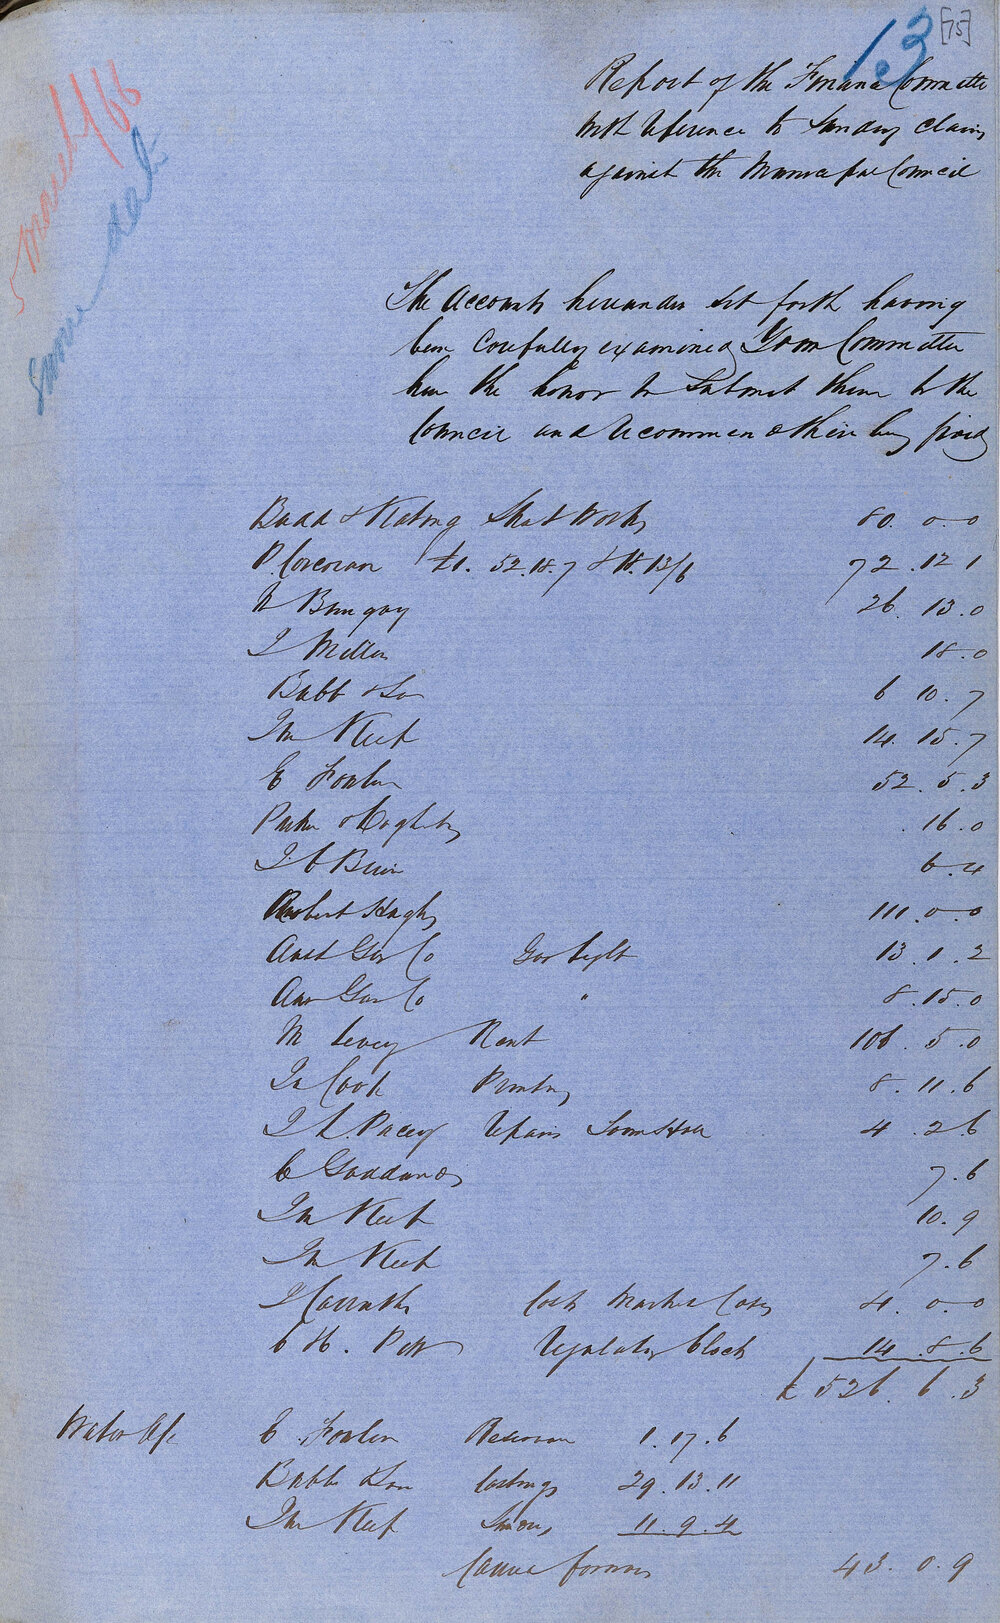 13 [75]
5 March/66
same date
Report of the Finance Committe
with reference to Sundry claims
against the Municipal Council
The Accounts hereunder set forth having
been carefully examined Your Committee
have the honor to Submit them to the
Council and recommend their being paid
Budd & Keating Works 80. 0. 0
P. Corcoran £1. 52.18.7 & 18.13/6 72. 12 1
26. 13. 0
J Miller 18. 0
Bubb & Son 6 10. 7
Jn Keep 14. 15. 7
E Fowler 52. 5. 3
16. 0
6. 4
Robert Hughes 111. 0. 0
Aust Gas Co Gas Light 13. 1. 2
Aus Gas Co " 8. 15. 0
M Levey Rent 106. 5. 0
Jn Cook Printing 8. 11. 6
Pacey Repairs Town Hall 4. 2 6
C Goddard 7. 6
Jn Keep 10. 9
Jn Keep 7. 6
Market 4. 0. 0
C H. Regulating Clock 14. 8. 6
£ 526. 6. 3
Water a/c E Fowler 1. 17. 6
Bubb & Son Castings 29. 13. 11
Jn Keep 11. 9. 4
Carried forward 43. 0. 9